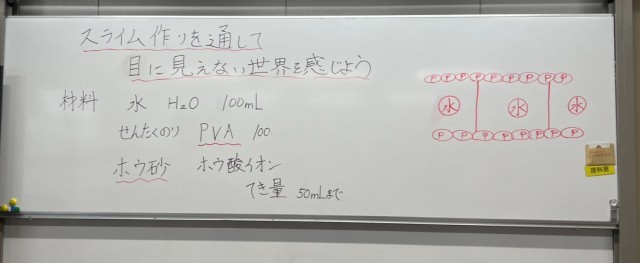 スライム作りを通して
目に見えない世界を感じよう
材料 水 H₂O 100mL
せんたくのり PVA 100
ホウ砂 ホウ酸イオン
てき量 50mLまで
P P P P P P P P P
水 水 水
P P P P P P P P
理科室